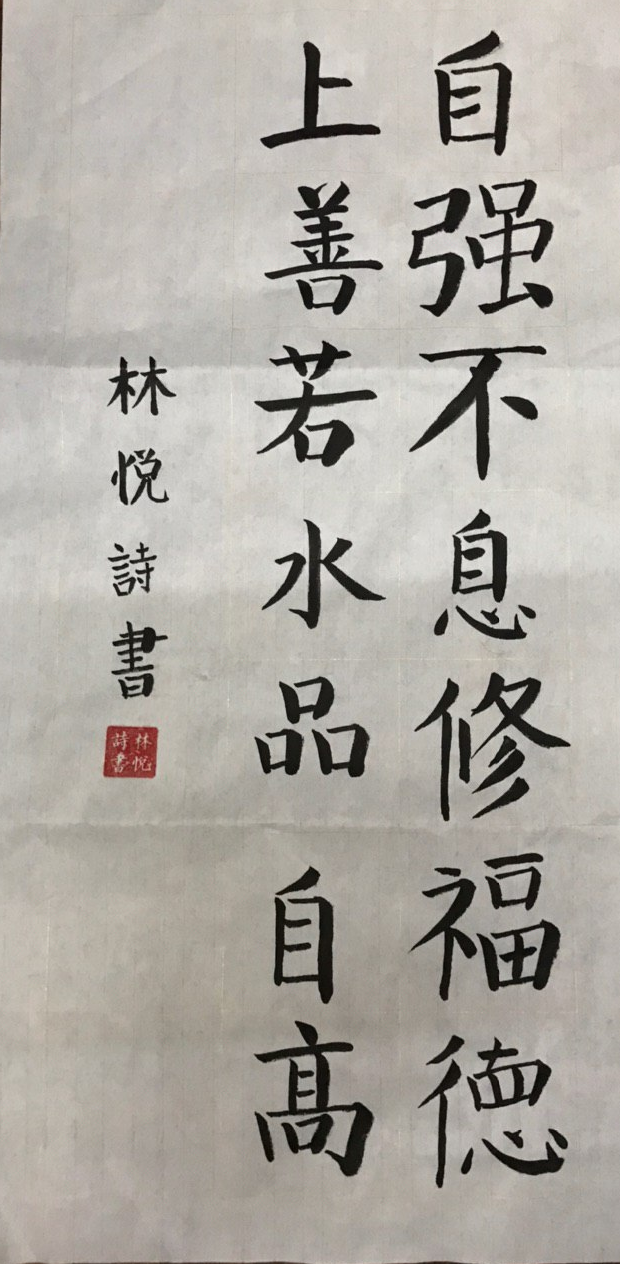 自强不息修福德
上善若水品自高
林悦詩書
林悦
詩書